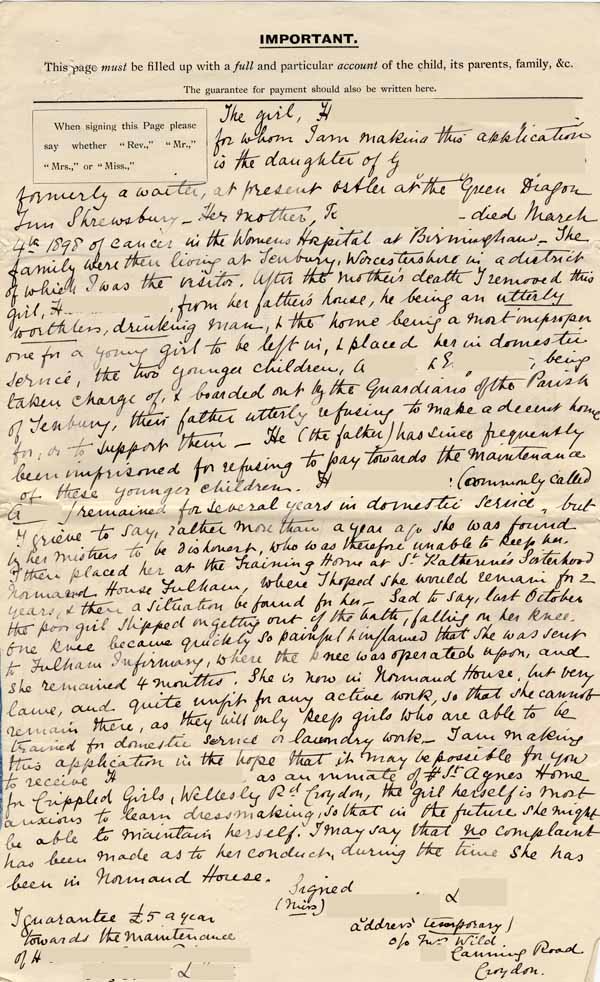 IMPORTANT.
This page must be filled up with a full and particular account of the child, its parents, family, &c.
The guarantee for payment should also be written here.
When signing this Page please
say whether "Rev.," "Mr.,"
"Mrs.," or "Miss.,"
The girl, H
for whom I am making this application
is the daughter of G
formerly a waiter, at present ostler at the "Green Dragon
Inn Shrewsbury - Her mother, - died March
4th 1898 of cancer in the Womens Hospital at Birmingham - The
family were then living at Tenbury, Worcestershire in a district
of which I was the visitor. After the mother's death I removed this
girl, H , from her father's house, he being an utterly
worthless, drinking man, & the home being a most improper
one for a young girl to be left in, & placed her in domestic
service, the two younger children, A & E. , being
taken charge of, & boarded out by the Guardians of the Parish
of Tenbury, their father utterly refusing to make a decent home
for, or to support them - He (the father) has since frequently
been imprisoned for refusing to pay towards the maintenance
of these younger children. H (commonly called
A ) remained for several years in domestic service, but
I grieve to say, rather more than a year ago she was found
by her mistress to be dishonest, who was therefore unable to keep her.
I then placed her at the Training Home at St Katherine's Sisterhood
Normand House Fulham, where I hoped she would remain for 2
years, & then a situation be found for her - Sad to say, last October
the poor girl slipped on getting out of the bath, falling on her knee.
One knee became quickly so painful & inflamed that she was sent
to Fulham Infirmary, where the knee was operated upon, and
she remained 4 months. She is now in Normand House, but very
lame, and quite unfit for any active work, so that she cannot
remain there, as they will only keep girls who are able to be
trained for domestic service or laundry work - I am making
this application in the hope that it may be possible for you
to receive H as an inmate of St Agnes Home
for Crippled Girls, Wellesley Rd Croydon, the girl herself is most
anxious to learn dressmaking, so that in the future she might
be able to maintain herself. I may say that no complaint
has been made as to her conduct, during the time she has
been in Normand House.
Signed
(Miss) L
I guarantee £5 a year
towards the maintenance
of H.
L
address temporary)
c/o Mrs Wild
Canning Road
Croydon.